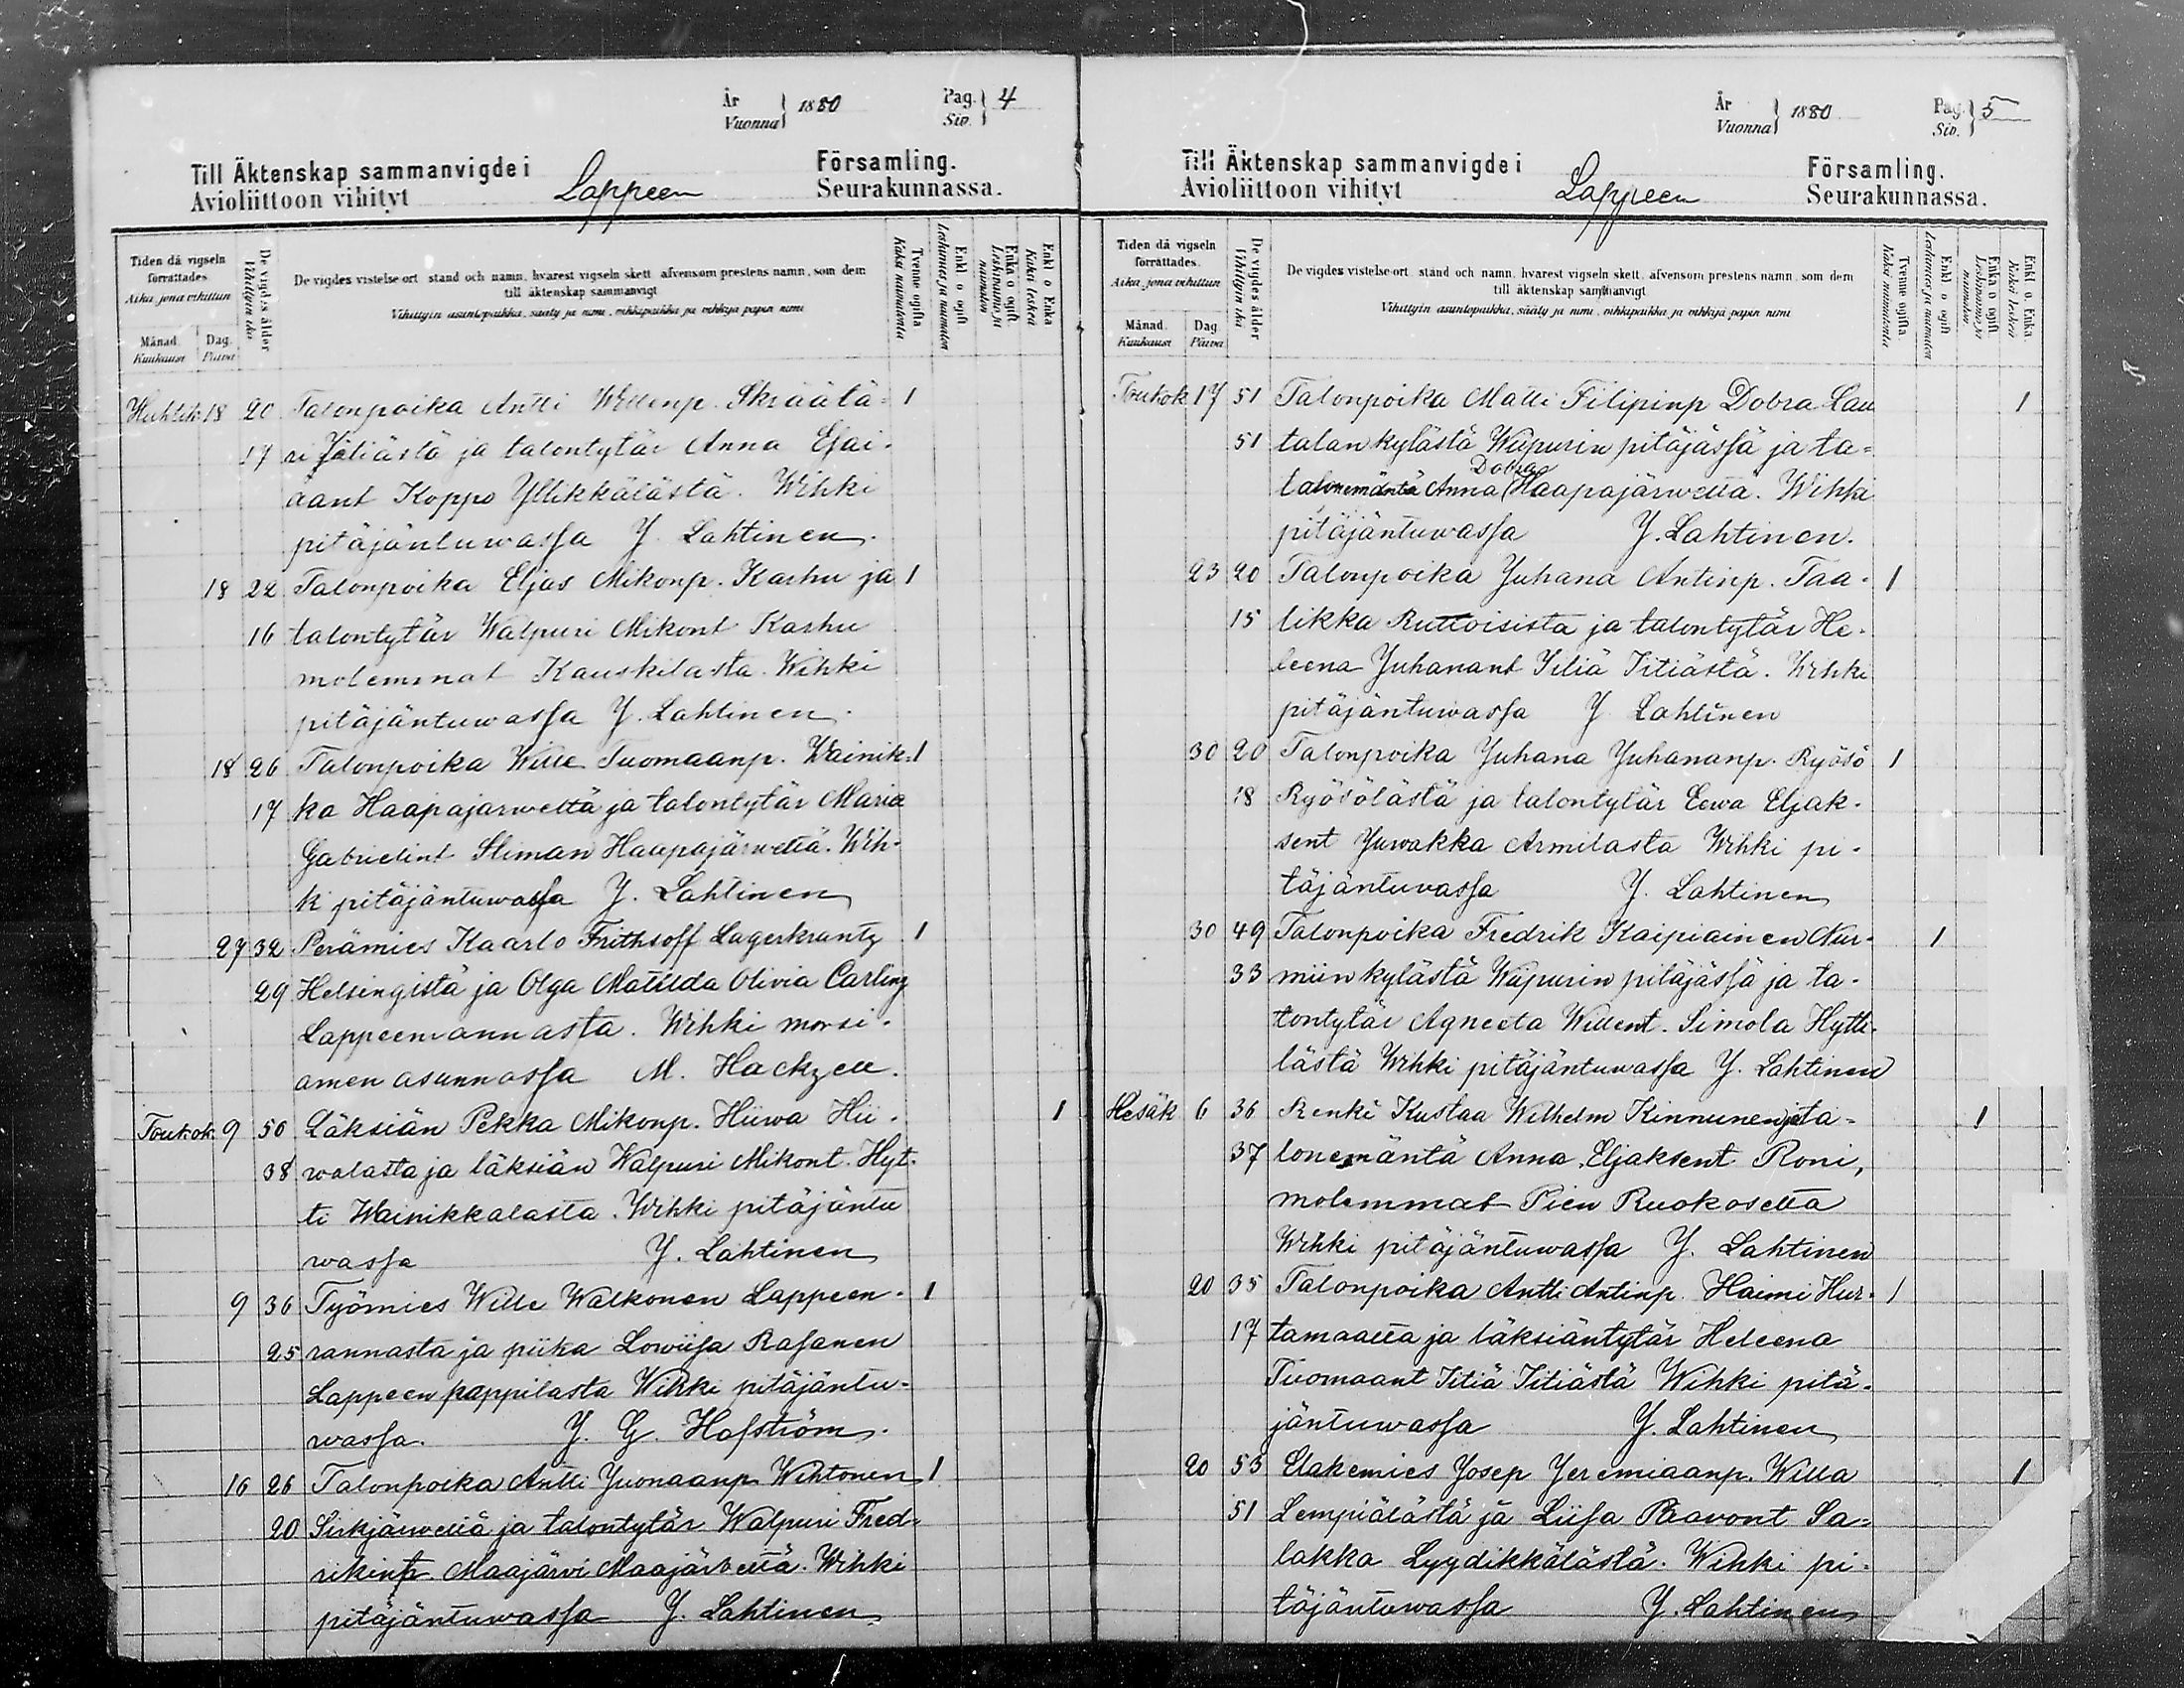 År
Vuonna } 1880
Pag.
Siv. } 4
Till Äktenskap sammanvigde i
Avioliittoon vihityt
Lappeen
Församling.
Seurakunnassa.
Tiden då vigseln
förrättades.
Aika, jona vihittiin
Månad.
Kuukausi
Dag.
Päivä
De vigdes ålder
Vihittyin ikä
De vigdes vistelseort, stånd och namn, hvarest vigseln skett, äfvensom prestens namn, som dem
till äktenskap sammanvigt
Vihittyin asuntopaikka, sääty ja nimi, vihkipaikka ja vihkijä papin nimi
Tvenne ogifta
Kaksi naimatonta
Enkl. o. ogift
Leskimies ja naimaton
Enka o. ogift.
Leskivaimo ja
naimaton
Enkl. o. Enka
Kaksi leskeä
Huhtik 18 20 Talonpoika Antti Willenp. Skräätä= 1
17 ri Jitiästä ja talontytär Anna Esai-
aant Koppo Yllikkälästä. Wihki
pitäjäntuwassa Y. Lahtinen.
18 22 Talonpoika Eljas Mikonp. Karhu ja 1
16 talontytär Walpuri Mikont Karhu
molemmat Kauskilasta. Wihki
pitäjäntuwassa Y. Lahtinen.
18 26 Talonpoika Wille Tuomaanp. Wainik= 1
17 ka Haapajarweltä ja talontytär Maria
Gabrielint Sliman Haapajärweltä. Wih-
ki pitäjäntuwassa Y. Lahtinen
27 32 Perämies Kaarlo Frithsoff Lagerkrantz 1
29 Helsingistä ja Olga Matilda Olivia Carling
Lappeenrannasta. Wihki morsi-
amen asunnossa M. Hackzell.
Toukok. 9 50 Läksiän Pekka Mikonp. Hiiwa Hii- 1
38 walasta ja läksiän Walpuri Mikont. Hyt-
ti Wainikkalasta. Wihki pitäjäntu
wassa Y. Lahtinen
9 36 Työmies Wille Walkonen Lappeen- 1
25 rannasta ja piika Lowiisa Rasanen
Lappeen pappilasta Wihki pitäjäntu-
wassa. Y. G. Hofström.
16 26 Talonpoika Antti Yuonaanp. Wihtonen 1
20 Sirkjärweltä ja talontytär Walpuri Fred-
rikint. Maajärwi Maajärweltä. Wihki
pitäjäntuwassa Y. Lahtinen
År
Vuonna } 1880
Pag.
Siv. } 5
Till Äktenskap sammanvigde i
Avioliittoon vihityt
Lappeen
Församling.
Seurakunnassa.
Tiden då vigseln
förrättades.
Aika, jona vihittiin
Månad.
Kuukausi
Dag.
Päivä
De vigdes ålder
Vihittyin ikä
De vigdes vistelseort, stånd och namn, hvarest vigseln skett, äfvensom prestens namn, som dem
till äktenskap sammanvigt
Vihittyin asuntopaikka, sääty ja nimi, vihkipaikka ja vihkijä papin nimi
Tvenne ogifta.
Kaksi naimatonta
Enkl. o. ogift
Leskimies ja naimaton
Enka o. ogift
Leskivaimo ja
naimaton
Enkl. o. Enka.
Kaksi leskeä
Toukok 17 51 Talonpoika Matti Filipinp Dobra Lau 1
51 talan kylästä Wiipurin pitäjässä ja ta=
Dobra
lonemäntä Anna Haapajärweltä. Wihki
pitäjäntuwassa Y. Lahtinen.
23 20 Talonpoika Juhana Antinp. Taa- 1
15 likka Ruttoisista ja talontytär He-
leena Juhanant Jitiä Jitiästä. Wihki
pitäjäntuwassa Y Lahtinen
30 20 Talonpoika Juhana Juhananp. Ryösö 1
18 Ryösölästä ja talontytär Eewa Eljak-
sent Juwakka Armilasta Wihki pi-
täjäntuwassa Y. Lahtinen
30 49 Talonpoika Fredrik Kaipiainen Nur- 1
33 miin kylästä Wiipurin pitäjässä ja ta-
lontytär Agneeta Willent. Simola Hytti-
lästä Wihki pitäjäntuwassa Y. Lahtinen
Kesäk 6 36 Renki Kustaa Wilhelm Kinnunen ja ta- 1
37 lonemäntä Anna Eljaksent Roni,
molemmat Pien Ruokoselta
Wihki pitäjäntuwassa Y. Lahtinen
20 35 Talonpoika Antti Antinp. Haimi Hur- 1
17 tamaalta ja läksiäntytär Heleena
Tuomaant Jitiä Jitiästä Wihki pitä-
jäntuwassa Y. Lahtinen
20 53 Elakemies Josep Jeremiaanp. Willa 1
51 Lempiälästä ja Liisa Paavont Sa-
lakka Lyydikkälästä. Wihki pi-
täjäntuwassa Y. Lahtinen